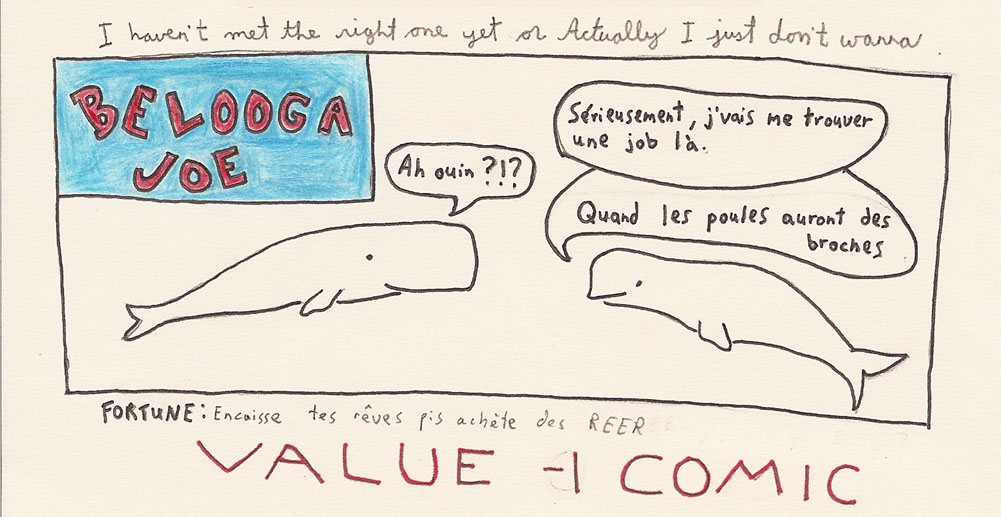 I haven't met the right one yet or Actually I just don't wanna
BELOOGA
JOE
Ah ouin ?!?
Sérieusement, j'vais me trouver
une job là.
Quand les poules auront des
broches
FORTUNE: Encaisse tes rêves pis achète des REER
VALUE -1 COMIC